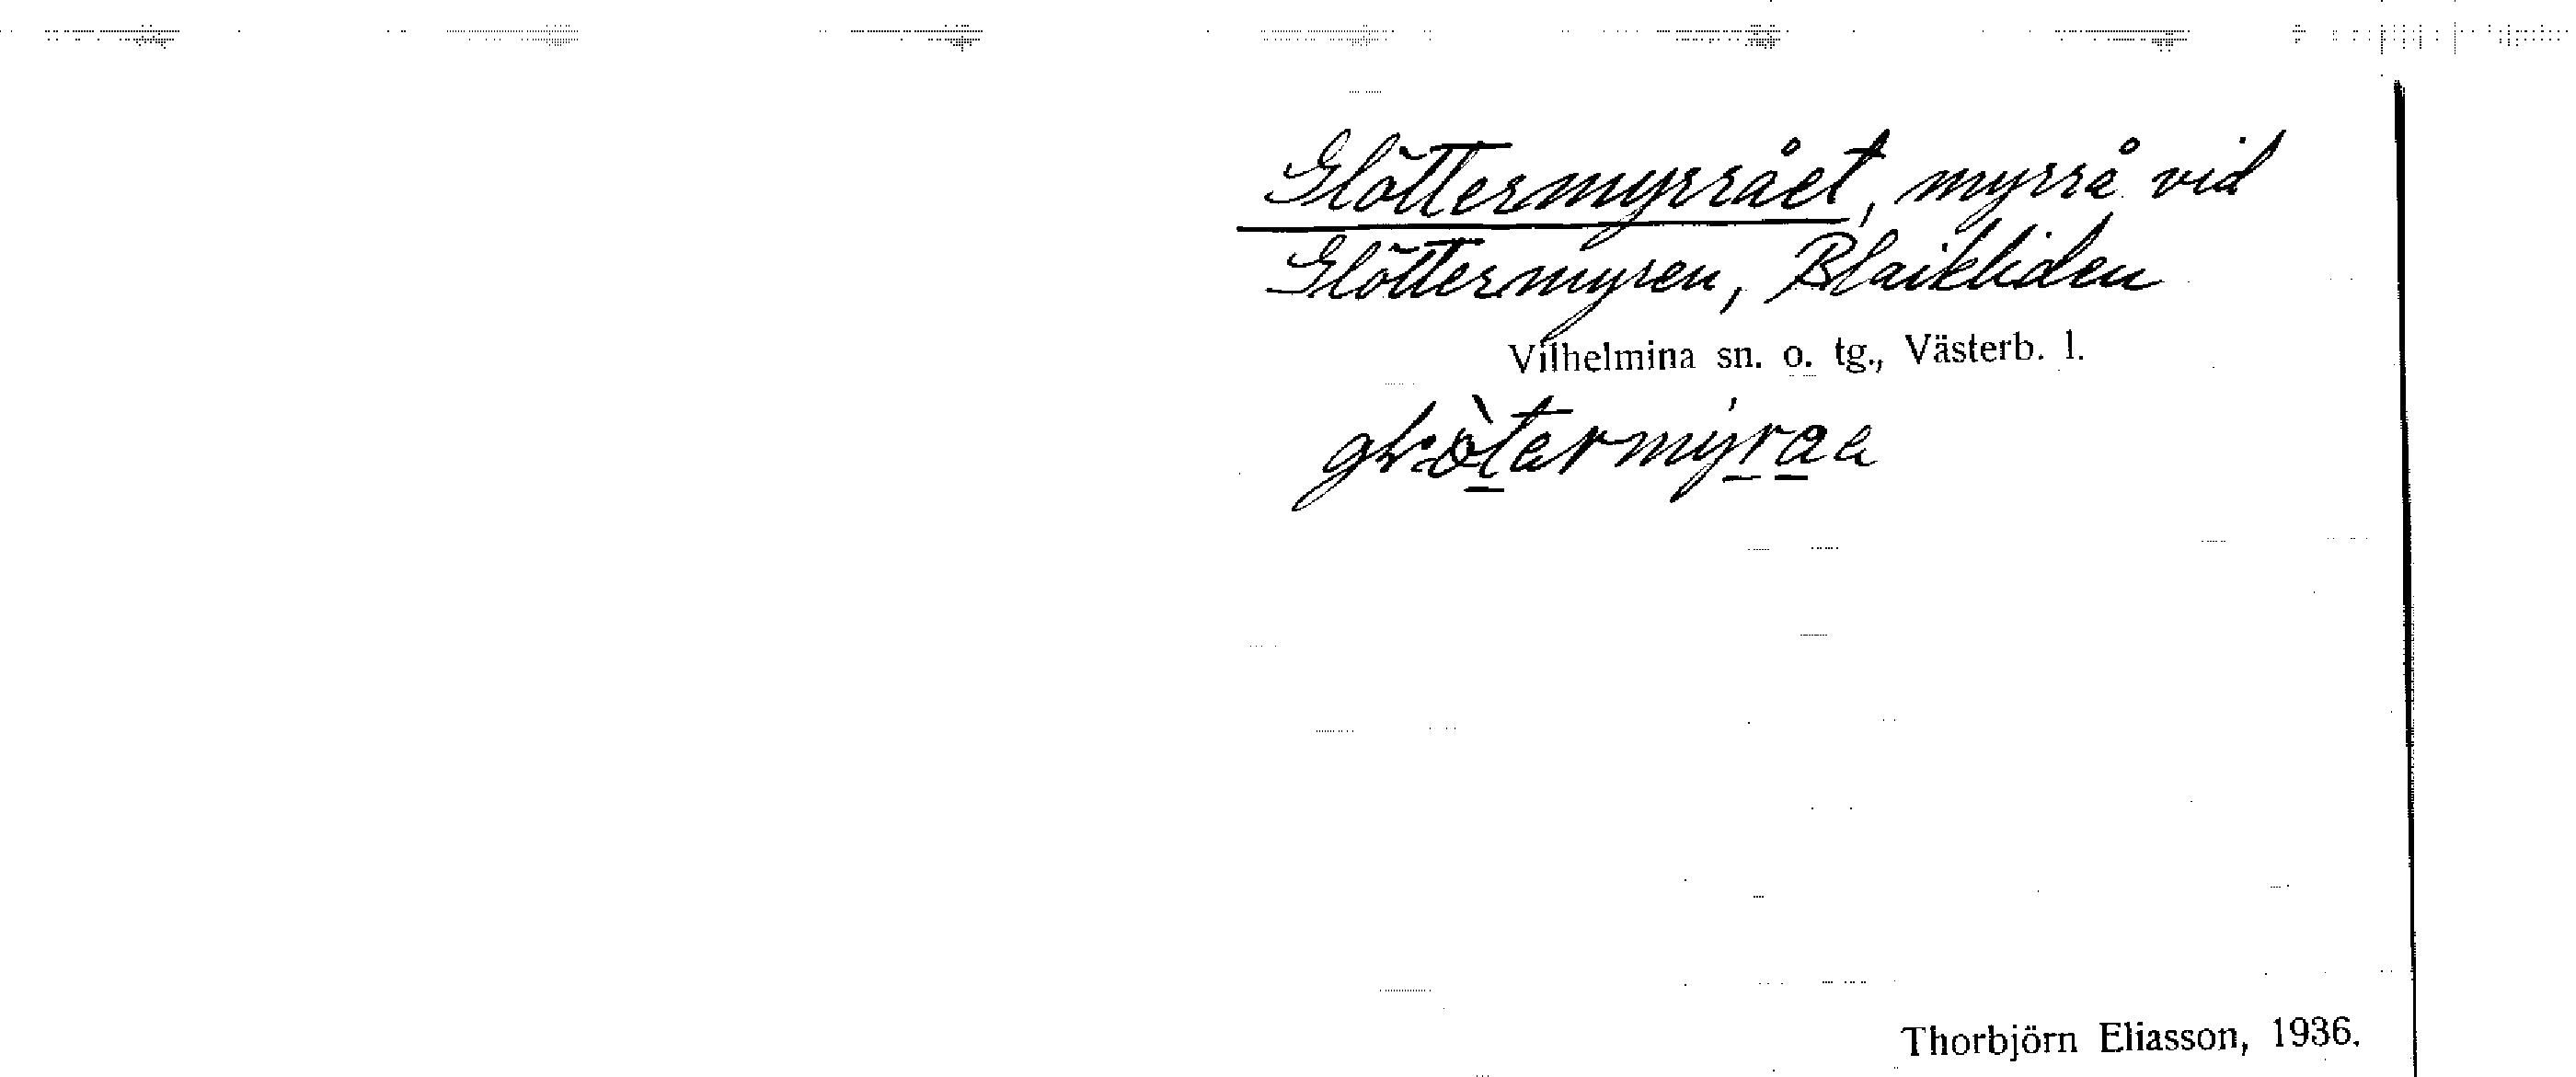 Glöttermyrrået, myrrå vid
Glöttermyren, Blaikliden
Vilhelmina sn. o. tg., Västerb. l.
Thorbjörn Eliasson, 1936.